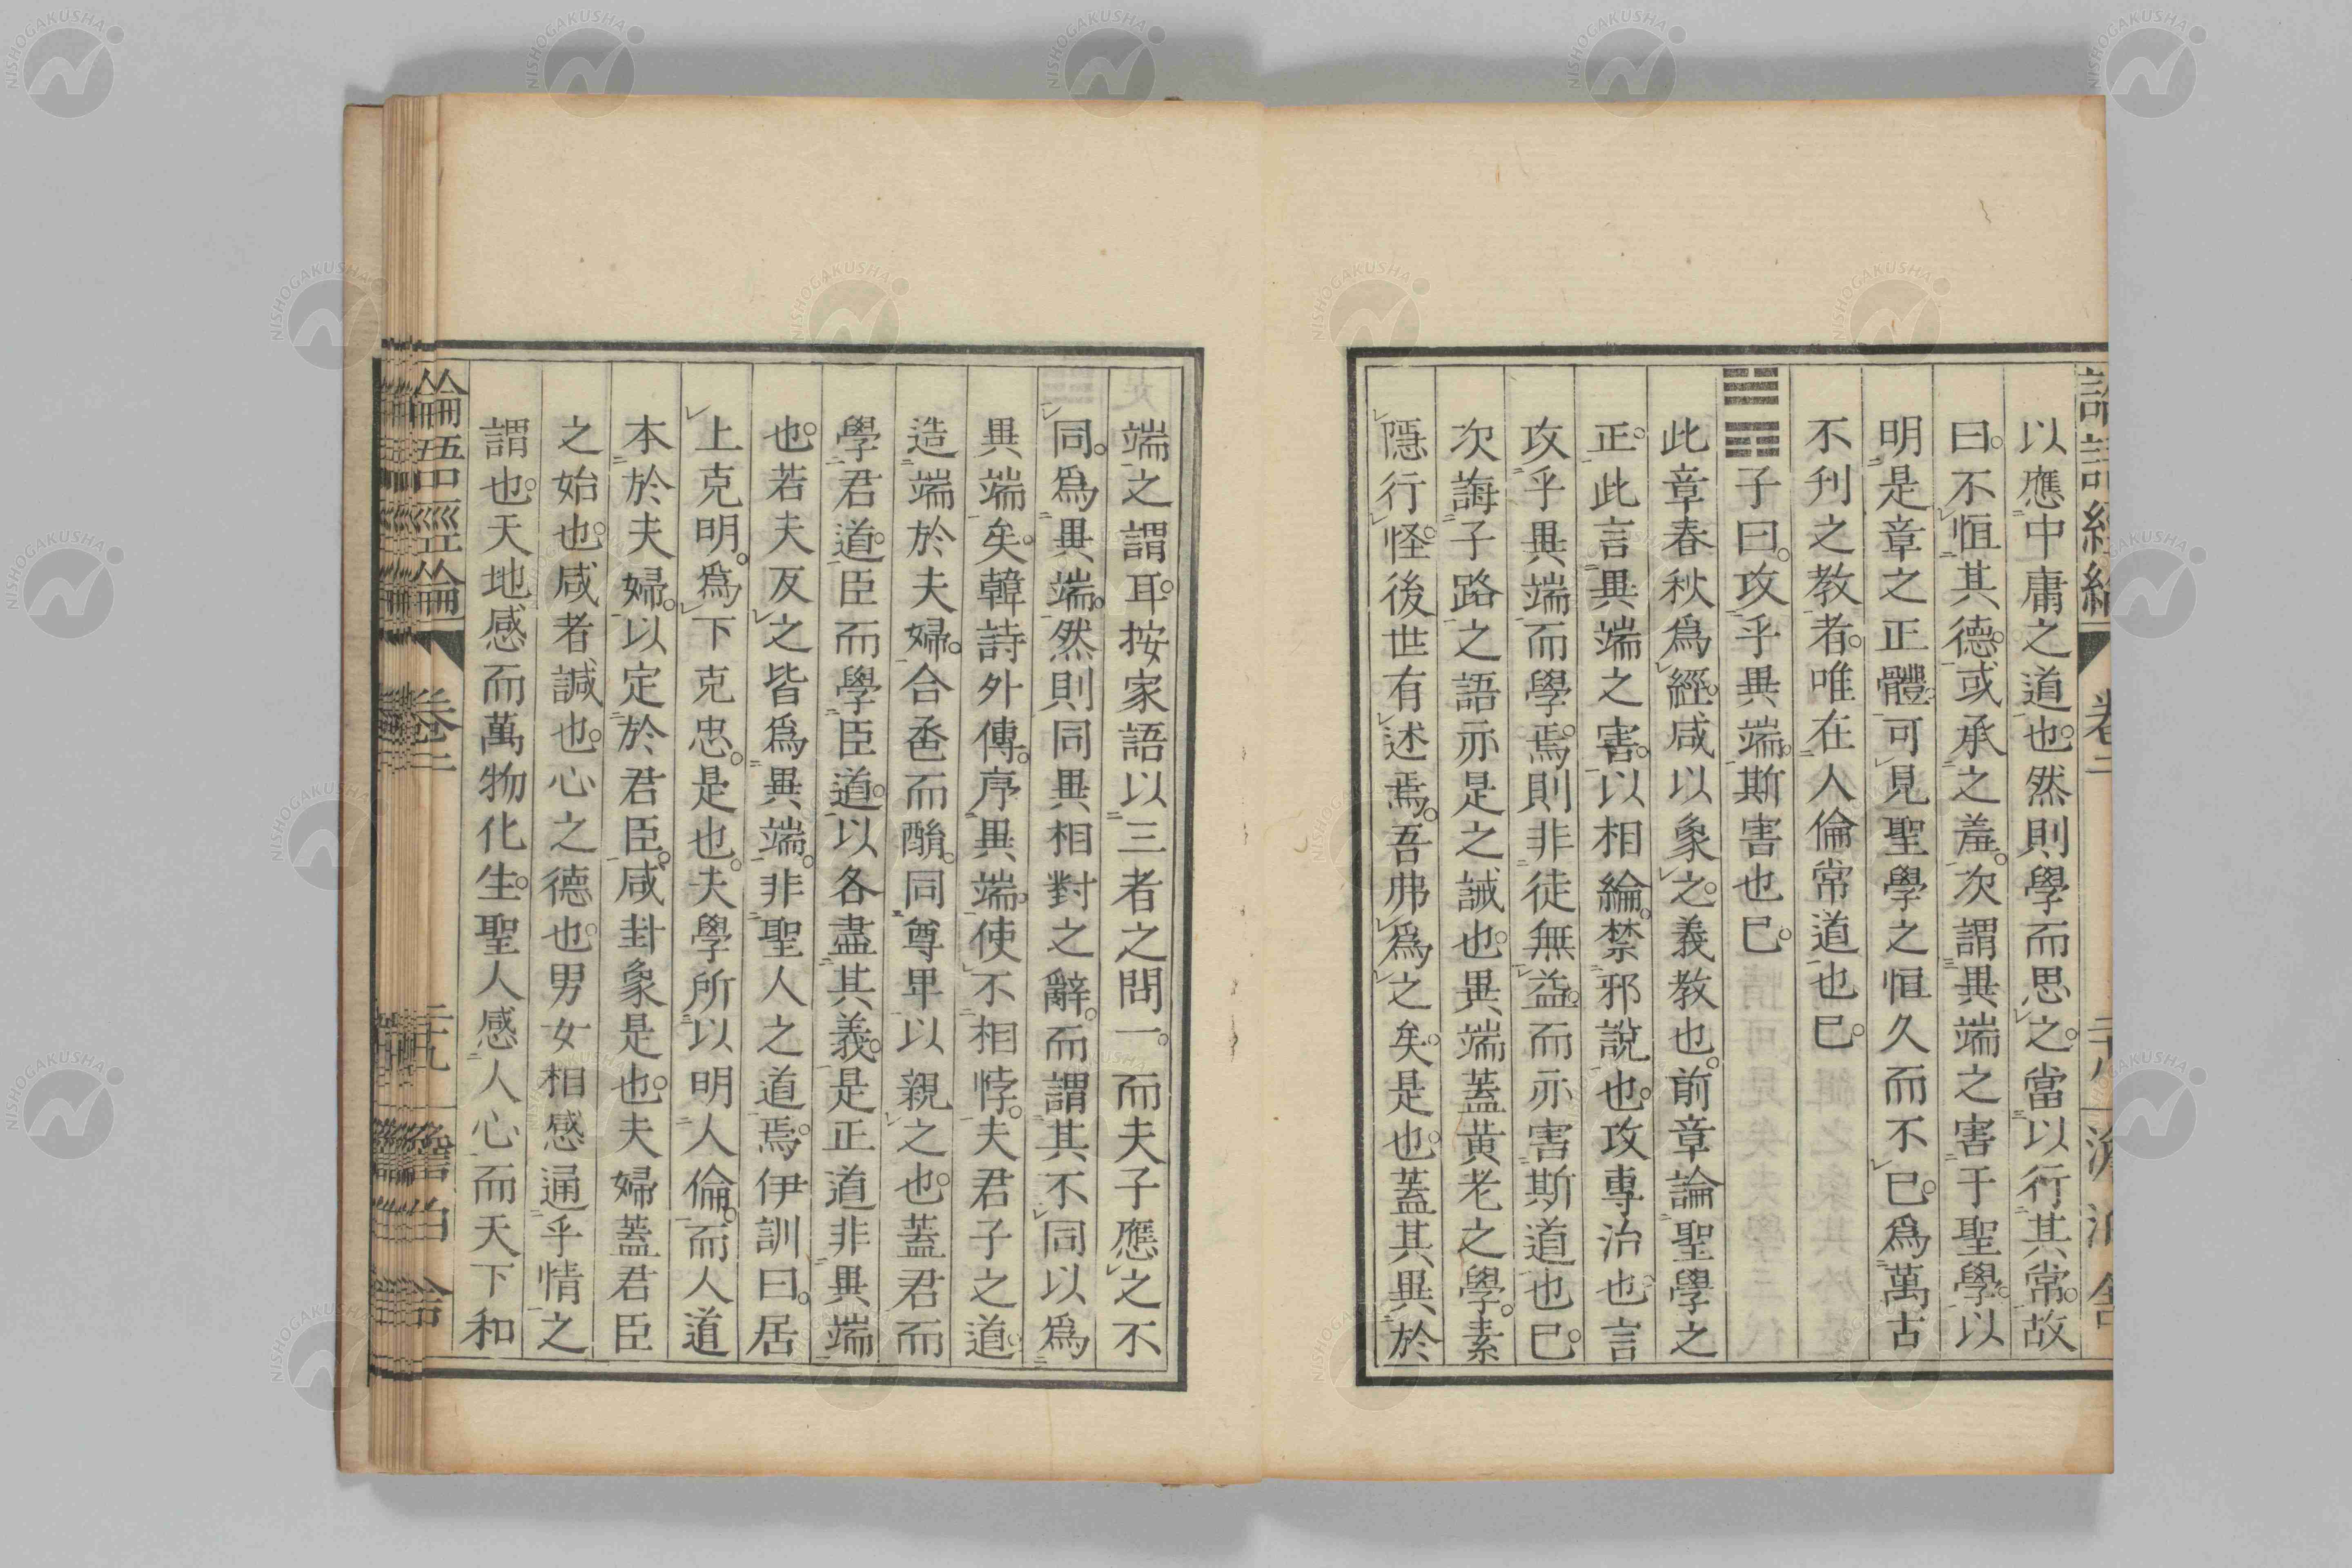 以應中庸之道也然則學而思之當以行其常故
曰不恒其德或承之羞次謂異端之害于聖學以
明是章之正體可見聖學之恒久而不已爲萬古
不刋之教者唯在人倫常道也已
子曰攻乎異端斯害也已
此章春秋爲經咸以象之義教也前章論聖學之
正此言異端之害以相綸禁邪說也攻專治也言
攻乎異端而學焉則非徒無益而亦害斯道也已
次誨子路之語亦是之誡也異端蓋黄老之學素
隱行怪後世有述焉吾弗爲之矣是也蓋其異於
端之謂耳按家語以三者之問一而夫子應之不
同爲異端然則同異相對之辭而謂其不同以爲
異端矣韓詩外傳序異端使不相悖夫君子之道
造端於夫婦合巹而酳同尊卑以親之也蓋君而
學君道臣而學臣道以各盡其義是正道非異端
也若夫反之皆爲異端非聖人之道焉伊訓曰居
上克明爲下克忠是也夫學所以明人倫而人道
本於夫婦以定於君臣咸卦象是也夫婦蓋君臣
之始也咸者諴也心之德也男女相感通乎情之
謂也天地感而萬物化生聖人感人心而天下和
論語經論 卷二
NISHOGAKUSHA